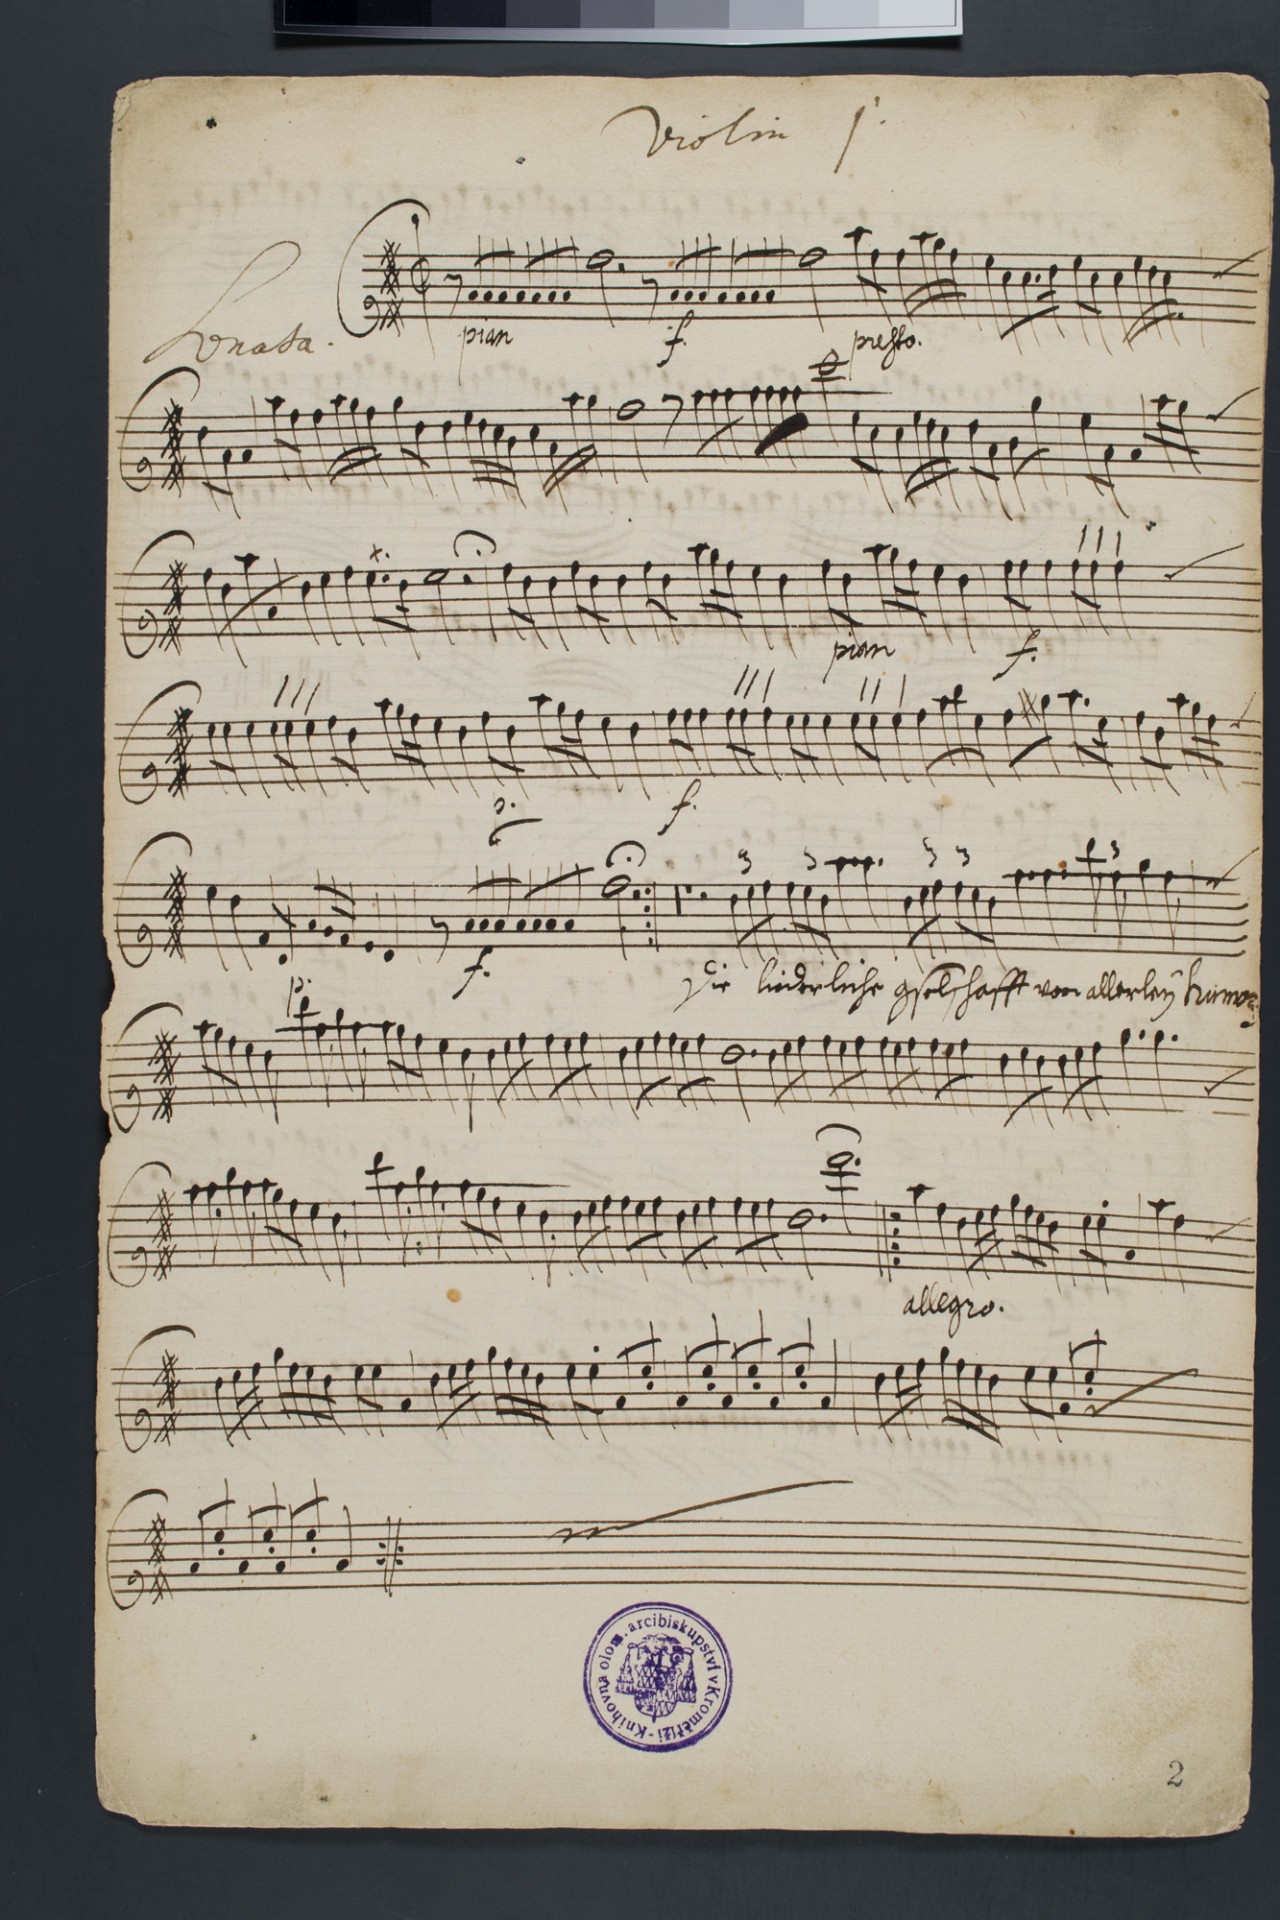 Violin 1.
Sonata.
pian f. presto.
pian f.
p. f.
f.
Die liederliche gselschafft von allerley humor
p.
allegro.
Knihovna olom. arcibiskupství v Kroměříži
2